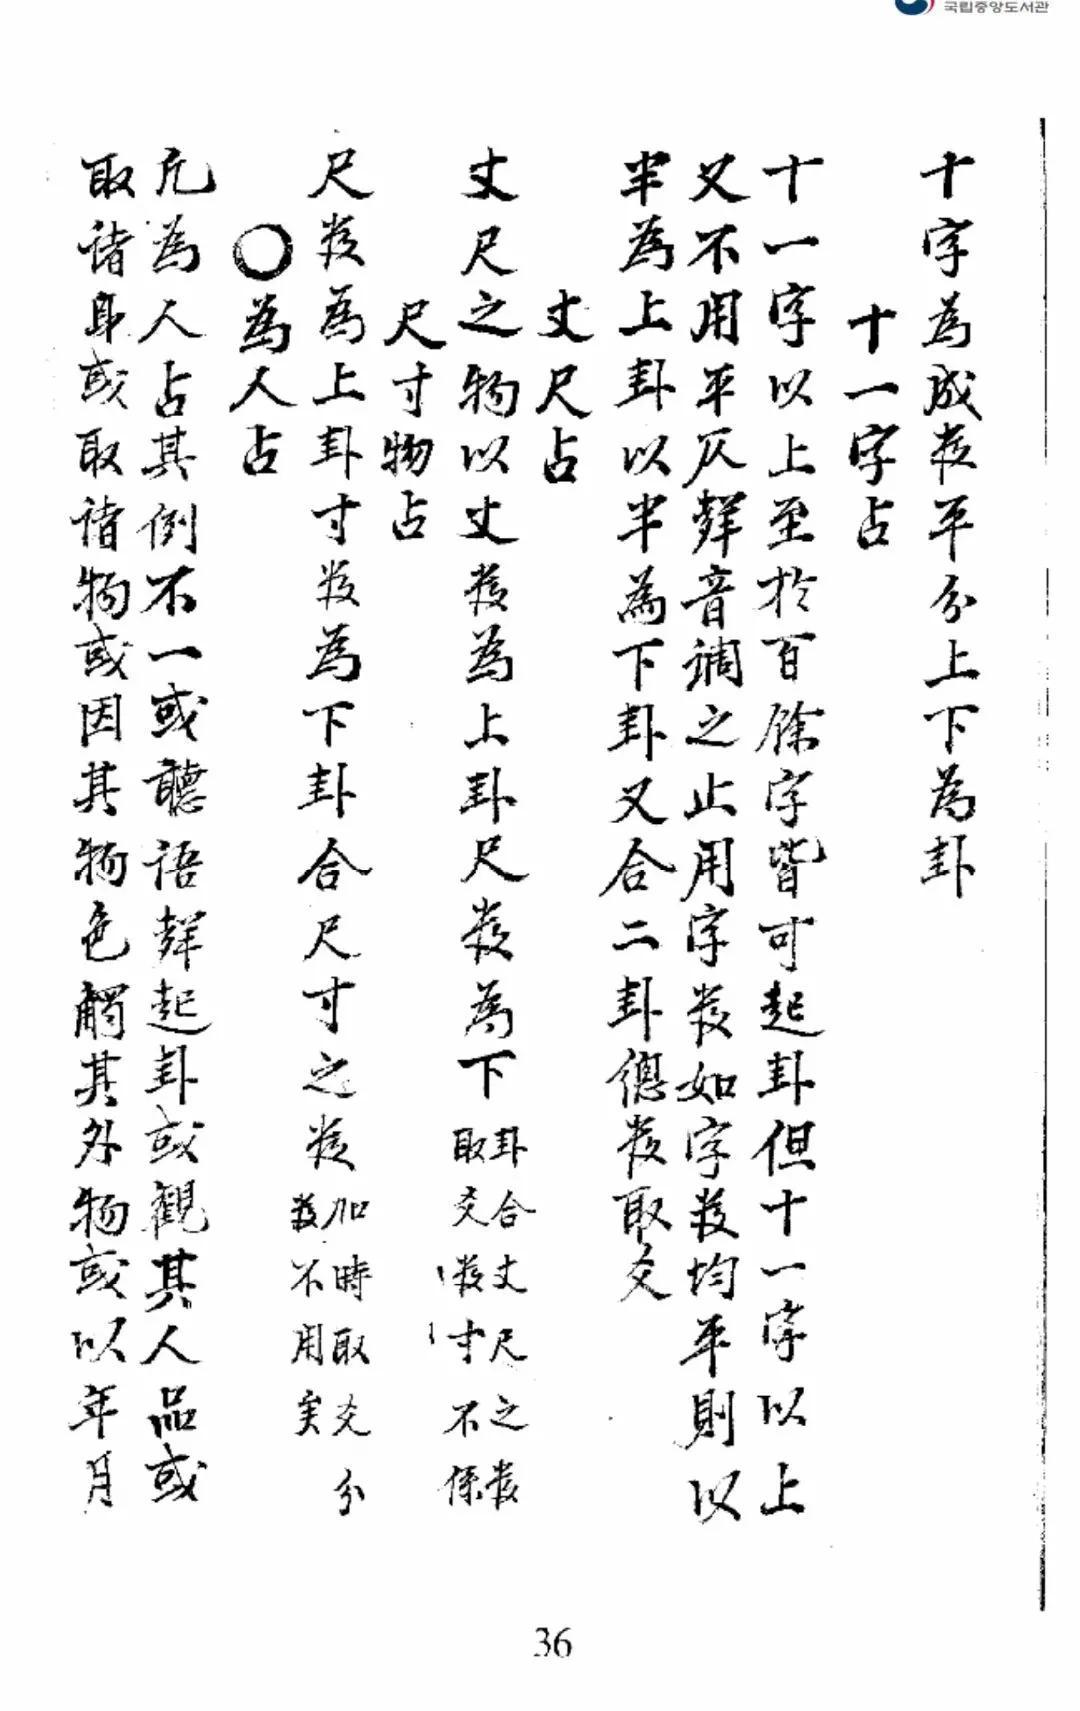 국립중앙도서관
十字為成数平分上下為卦
十一字占
十一字以上至於百餘字皆可起卦但十一字以上
又不用平仄聲音調之止用字数如字数均平則以
半為上卦以半為下卦又合二卦總数取爻
丈尺占
丈尺之物以丈数為上卦尺数為下
卦合丈尺之数
取爻数寸不係
尺寸物占
尺数為上卦寸数為下卦合尺寸之数
加時取爻分
数不用矣
○為人占
凡為人占其例不一或聽語聲起卦或觀其人品或
取諸身或取諸物或因其物色觸其外物或以年月
36